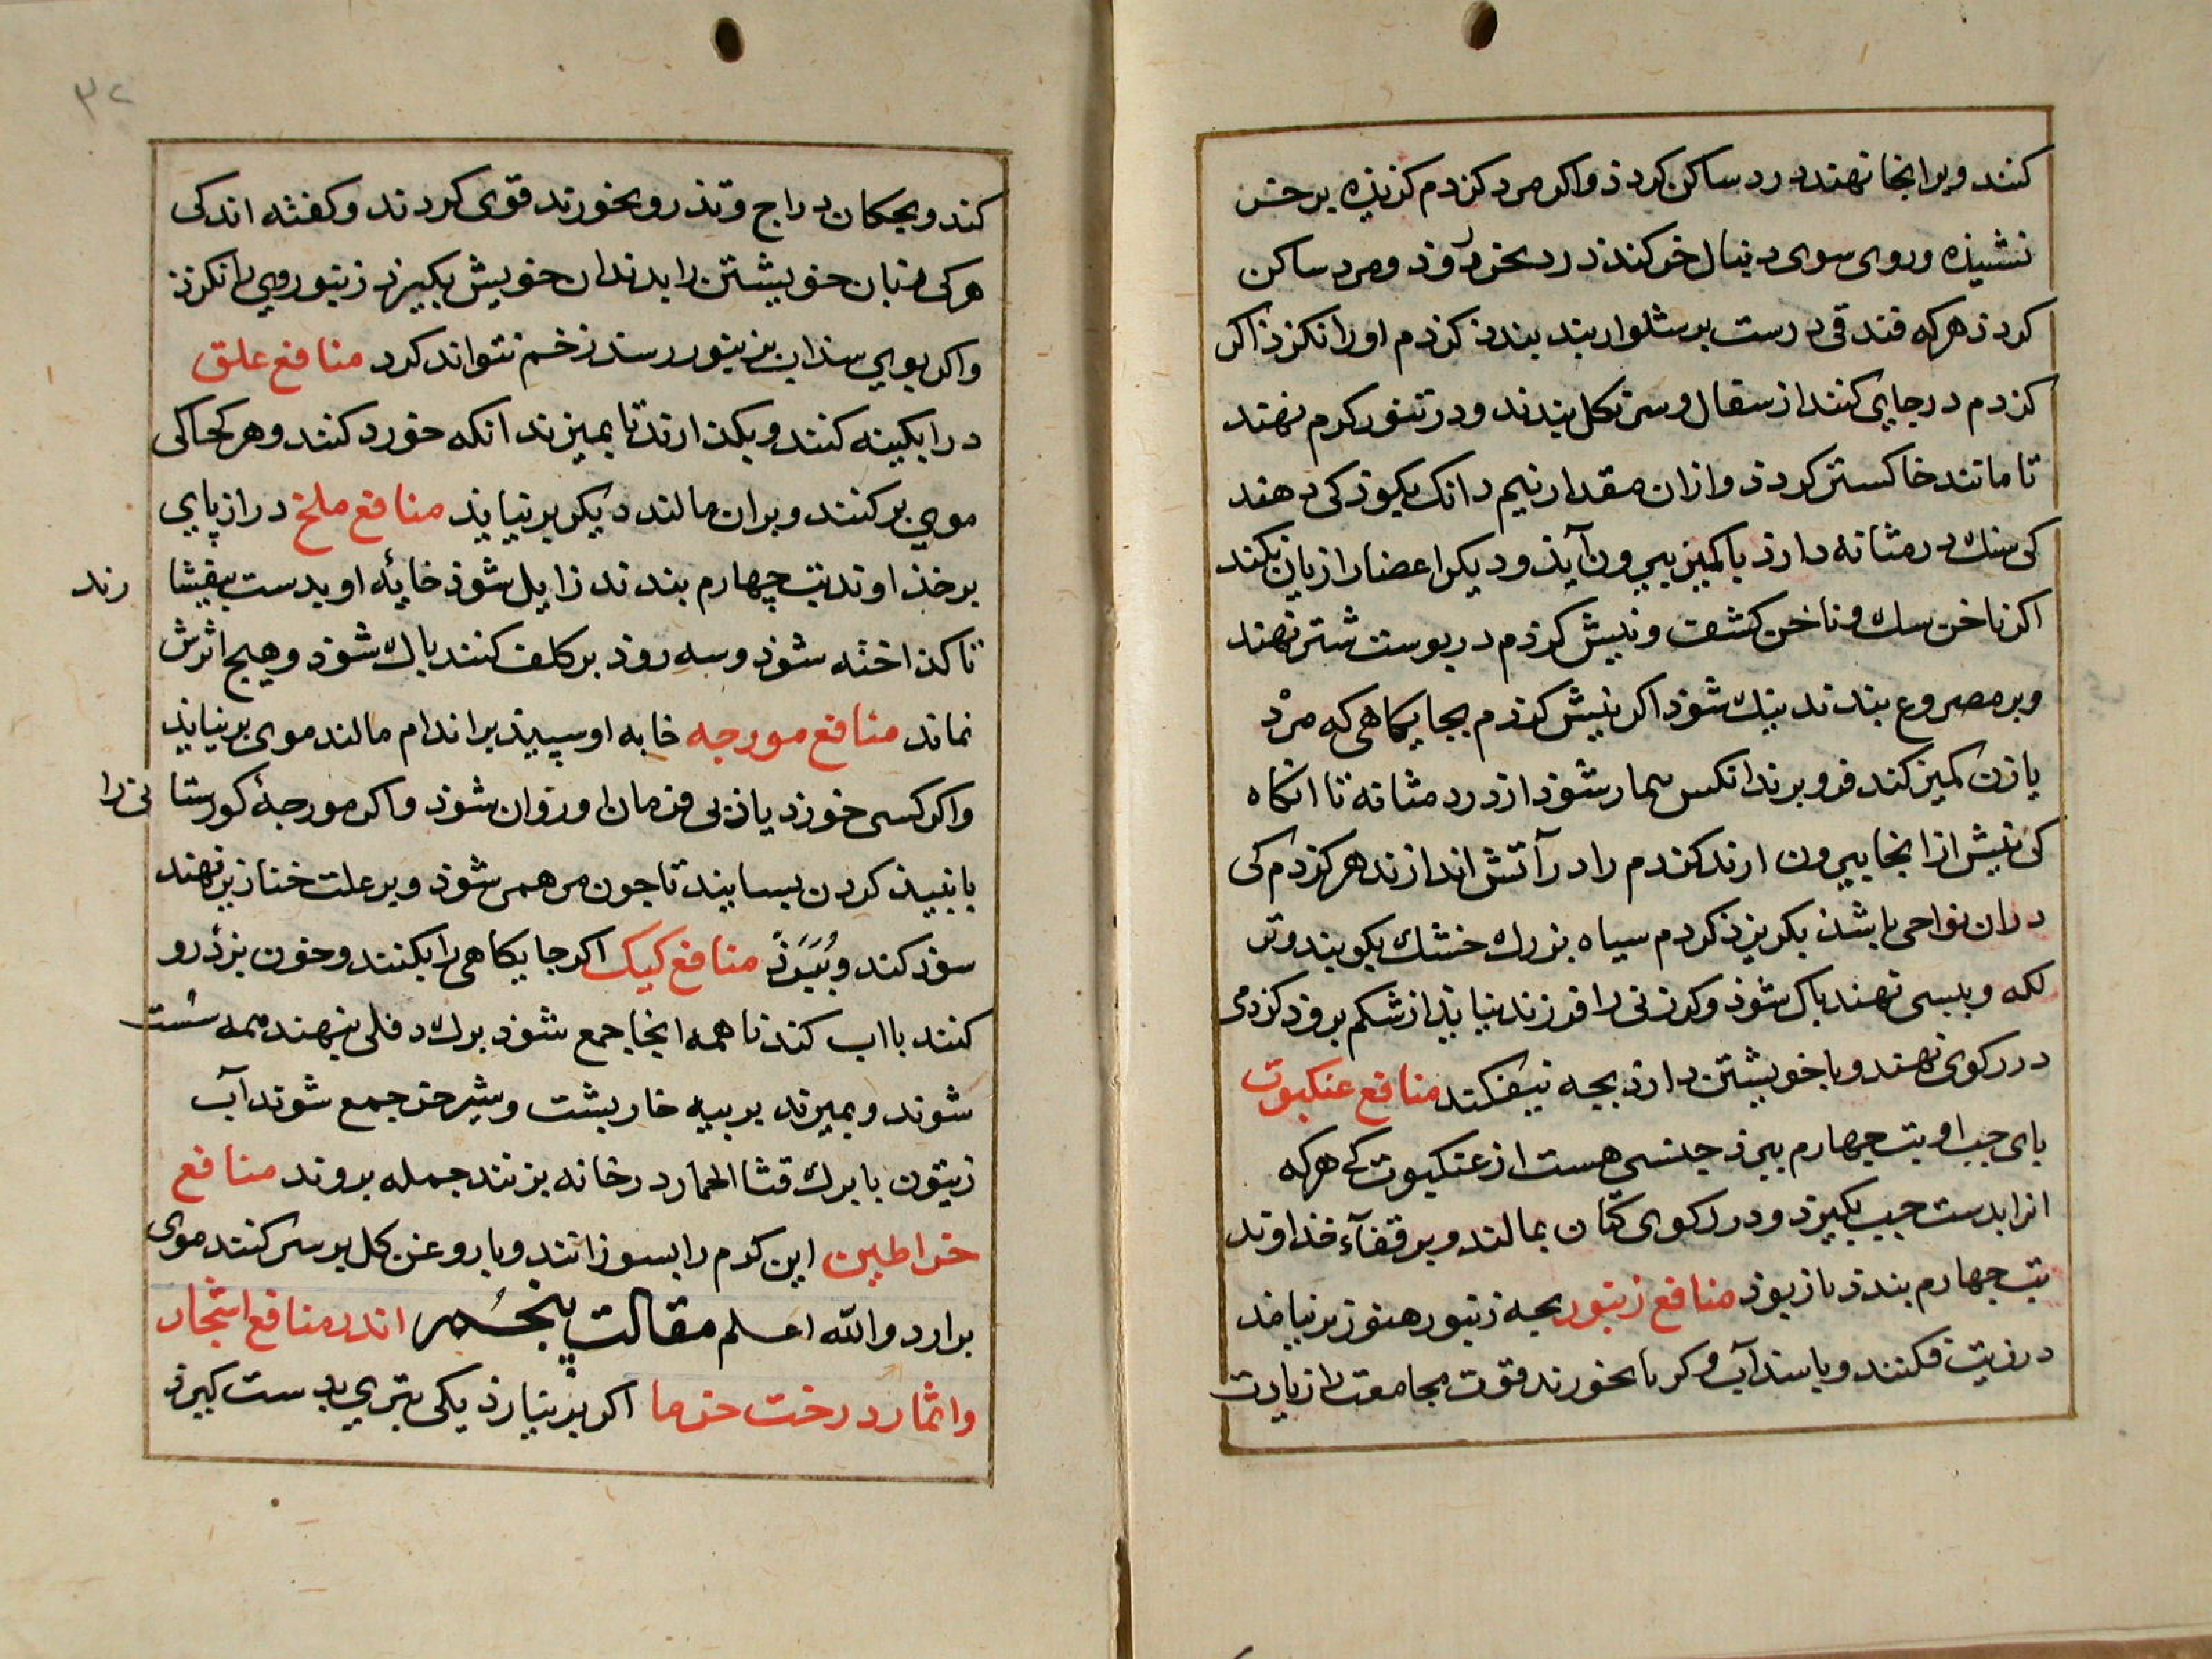 کنند و برانجا نهند درد ساکن کردذ واکر مرد کزدم کزیذه بر خر
نشیند وروی سوی دنبال خر کند درد بخر رَوذ ومرد ساکن
کردذ هر که فندقی درست بر شلوار بند بندذ کزدم او را نکزذ اکر
کزدم در جایی کنند از سفال وسرش بکل بندند ودر تنور کرم نهند
تا مانند خاکستر کردذ وازان مقدار نیم دانک بکوذکی دهند
کی سنک در مثانه دارذ با کمیز بیرون آیذ ودیکر اعضا را زیان نکند
اکر ناخن سک وناخن کشف ونیش کزدم در پوست شتر نهند
وبر مصروع بندند نیک شوذ اکر نیش کزدم بجایکاهی که مردْ
یا زن کمیز کند فرو برند انکس بیمار شوذ از درد مثانه تا انکاه
کی نیش از انجا بیرون ارند کزدم را در آتش اندازند هر کزدم کی
دران نواحی باشذ بکریزذ کزدم سیاه بزرک خشک بکوبند وبر
لکه وپیسی نهند پاک شوذ وکر زنی را فرزند نیاید از شکم بروذ کزدمی
در رکوی نهند وبا خویشتن دارذ بچه نیفکند منافع عنکبوت
پای چپ او تب چهارم ببرذ جنسی هست از عنکبوت کی هر که
انرا بدست چپ بکیرذ ودر رکوی کتان بمالند وبر قفآء خذاوند
تب چهارم بندذ باز بوذ منافع زنبور بچه زنبور هنوز پر نیامذ
در زیت فکنند وبا سداب وکرویا بخورند قوت مجامعت را زیادت
کند وبچکان دراج وتذرو بخورند قوی کردند وکفته اند کی
هر کی زبان خویشتن را بدندان خویش بکیرد زنبور وی را نکزذ
واکر بوی سذاب بزنبور رسد زخم نتواند کرد منافع علق
در ابکینه کنند وبکذارند تا بمیرند انکه خورد کنند وهر کجا کی
موی بر کنند وبران مالند دیکر بر نیایذ منافع ملخ دراز پای
بر خذاوند تب چهارم بندند زایل شوذ خایۀ او بدست بیفشا رند
تا کداخته شوذ وسه روذ بر کلف کنند پاک شوذ وهیج اثرش
نماند منافع مورجه خایه او سپیذ بر اندام مالند موی بر نیایذ
واکر کسی خورذ باذ بی فرمان او روان شوذ واکر مورجۀ کورستا نی را
با نبیذ کردن بسایند تا جون مرهمی شوذ وبر علت خنازیر نهند
سوذ کند وببَرَذ منافع کیک اکر جایکاهی را بکنند وخون بز درو
کنند با اب کند تا همه انجا جمع شوذ برک دفلی بنهند همه سُست
شوند وبمیرند بر پیه خارپشت وشیر خر جمع شوند آب
زیتون با برک قثا الحمار در خانه بزنند جمله بروند منافع
خراطین این کرم را بسوزانند وبا روغن کل بر سر کنند موی
برارد والله اعلم مقالت پنجُم اندر منافع اشجار
واثمار درخت خرما اکر بر نیارذ یکی تبری بدست کیرذ